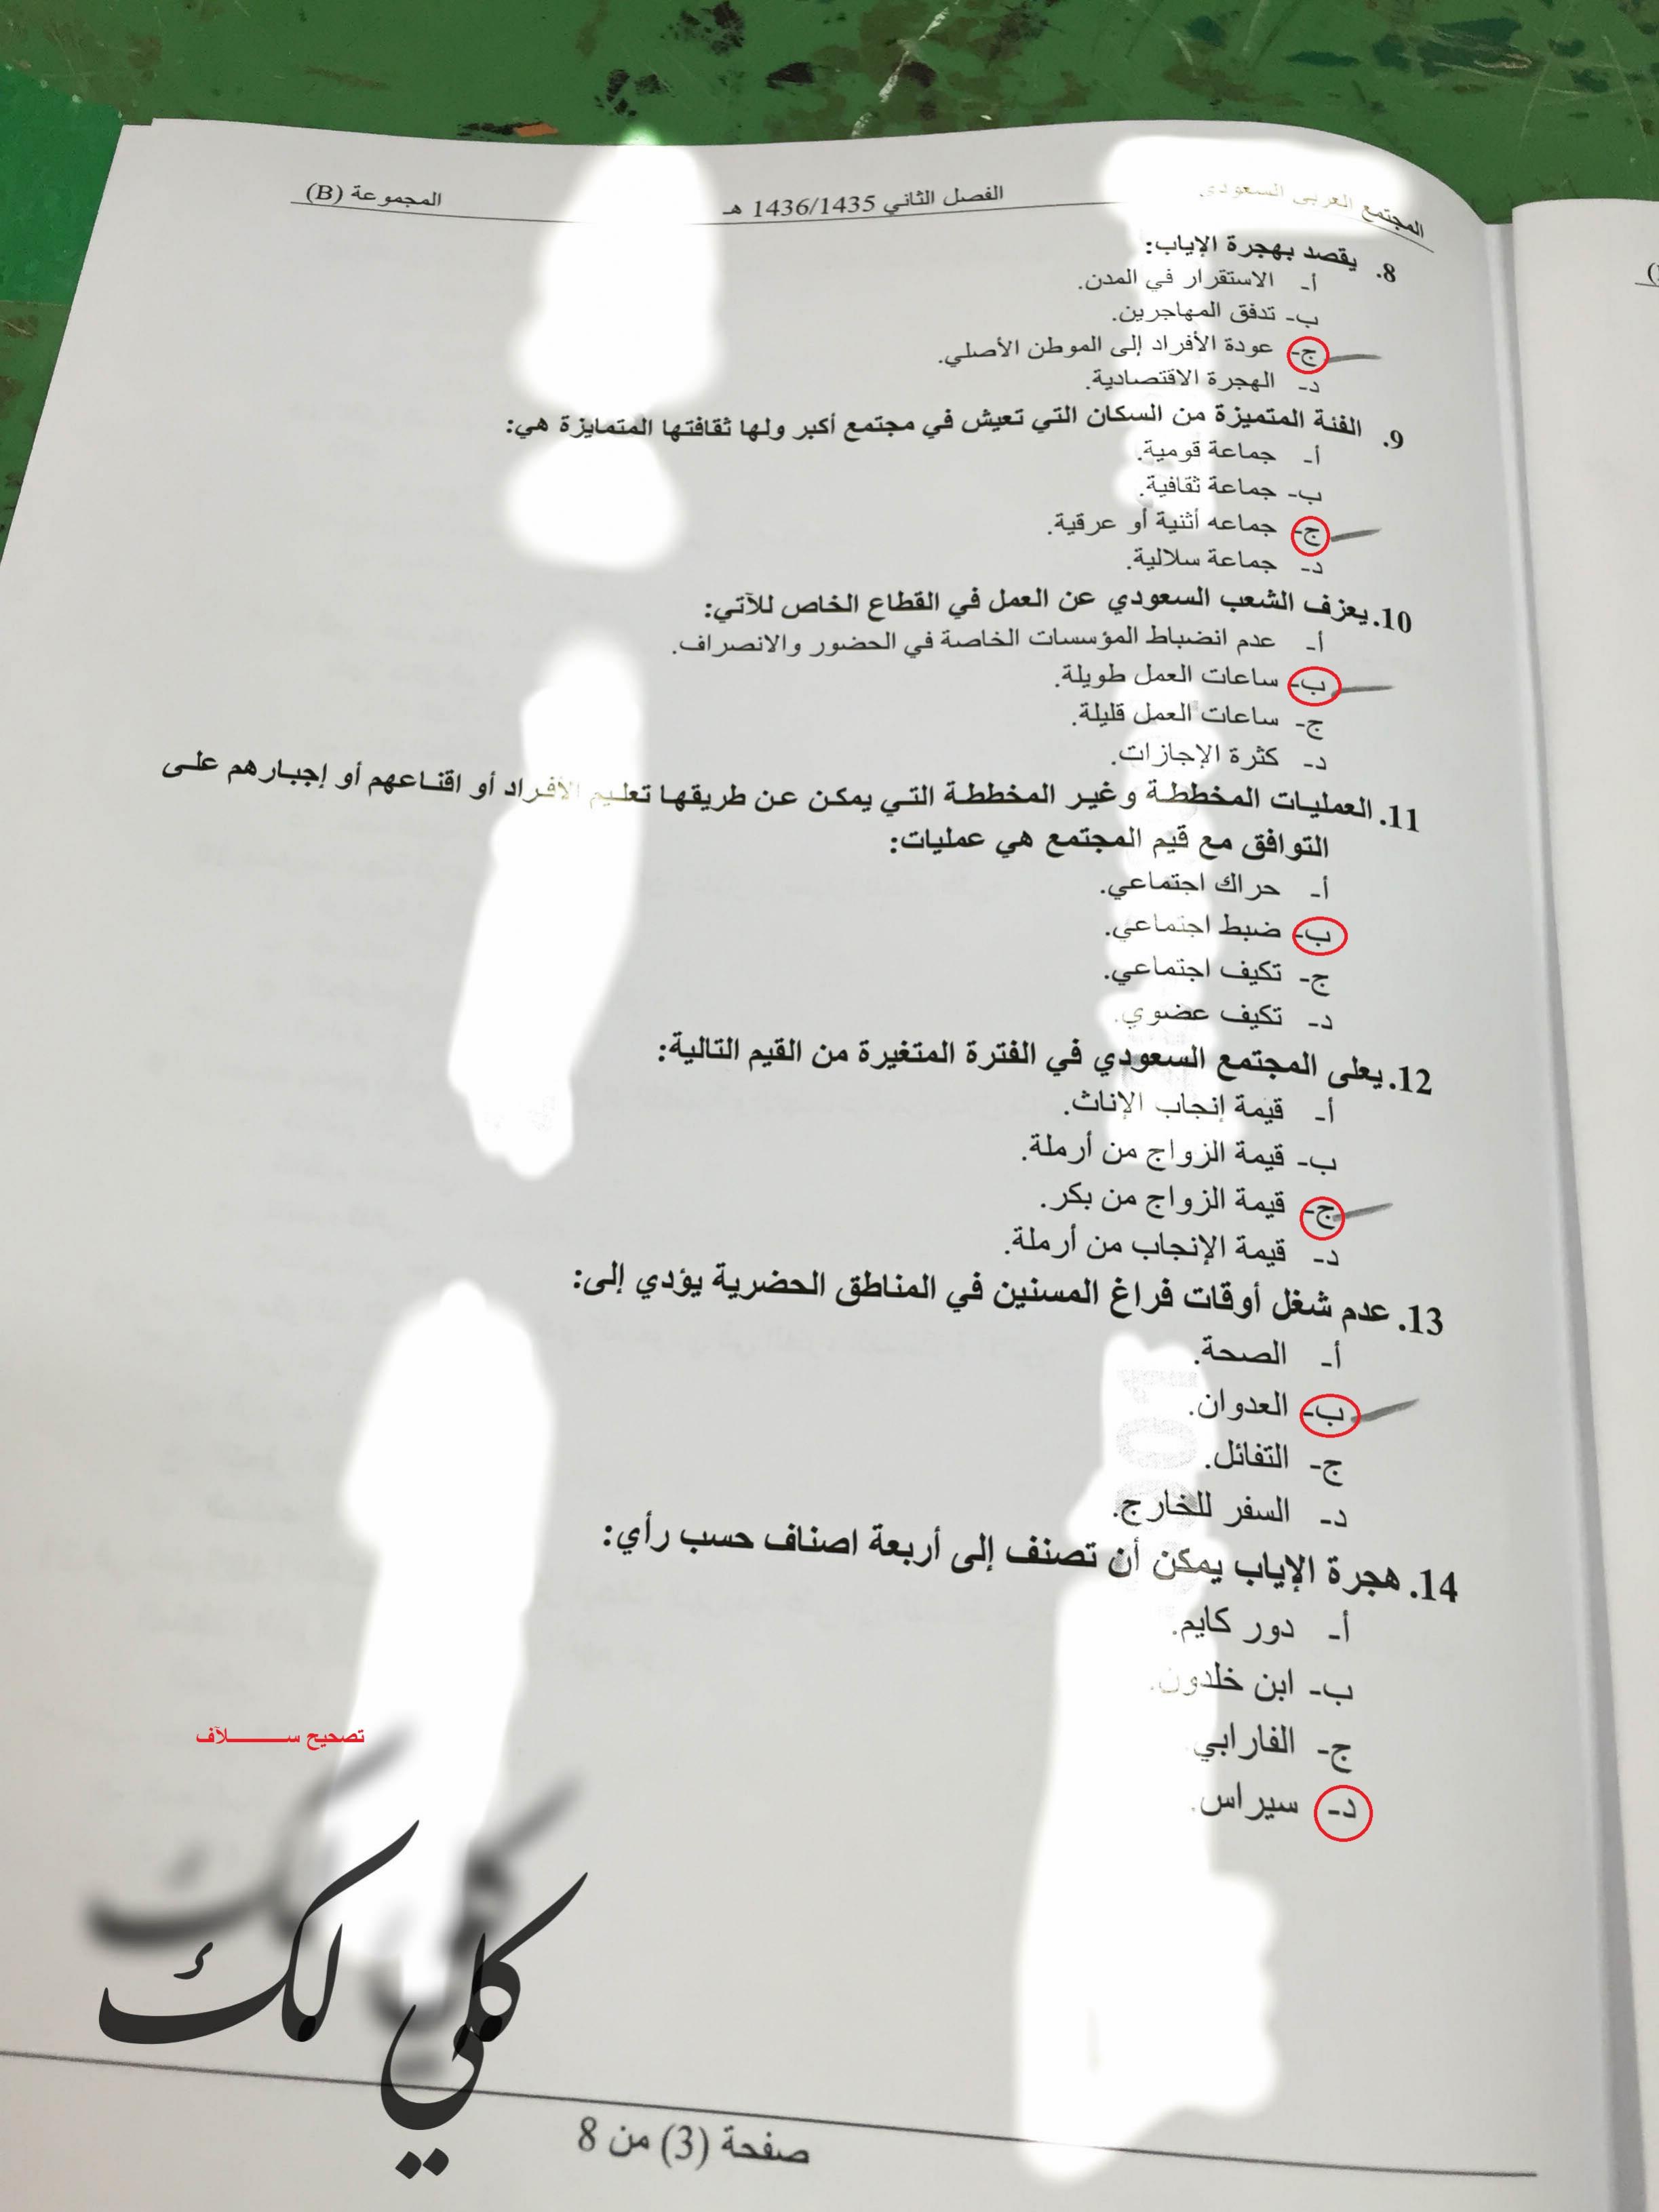 المجتمع العربي السعودي الفصل الثاني 1436/1435 هـ المجموعة (B)
8. يقصد بهجرة الإياب:
أ- الاستقرار في المدن.
ب- تدفق المهاجرين.
ج- عودة الأفراد إلى الموطن الأصلي.
د- الهجرة الاقتصادية.
9. الفئة المتميزة من السكان التي تعيش في مجتمع أكبر ولها ثقافتها المتمايزة هي:
أ- جماعة قومية.
ب- جماعة ثقافية.
ج- جماعه أثنية أو عرقية.
د- جماعة سلالية.
10. يعزف الشعب السعودي عن العمل في القطاع الخاص للآتي:
أ- عدم انضباط المؤسسات الخاصة في الحضور والانصراف.
ب- ساعات العمل طويلة.
ج- ساعات العمل قليلة.
د- كثرة الإجازات.
11. العمليات المخططة وغير المخططة التي يمكن عن طريقها تعليم الأفراد أو اقناعهم أو إجبارهم على
التوافق مع قيم المجتمع هي عمليات:
أ- حراك اجتماعي.
ب- ضبط اجتماعي.
ج- تكيف اجتماعي.
د- تكيف عضوي.
12. يعلى المجتمع السعودي في الفترة المتغيرة من القيم التالية:
أ- قيمة إنجاب الإناث.
ب- قيمة الزواج من أرملة.
ج- قيمة الزواج من بكر.
د- قيمة الإنجاب من أرملة.
13. عدم شغل أوقات فراغ المسنين في المناطق الحضرية يؤدي إلى:
أ- الصحة.
ب- العدوان.
ج- التفائل.
د- السفر للخارج.
14. هجرة الإياب يمكن أن تصنف إلى أربعة اصناف حسب رأي:
أ- دور كايم.
ب- ابن خلدون.
ج- الفارابي.
د- سيراس.
تصحيح ســـــلآف
كلي لك
صفحة (3) من 8